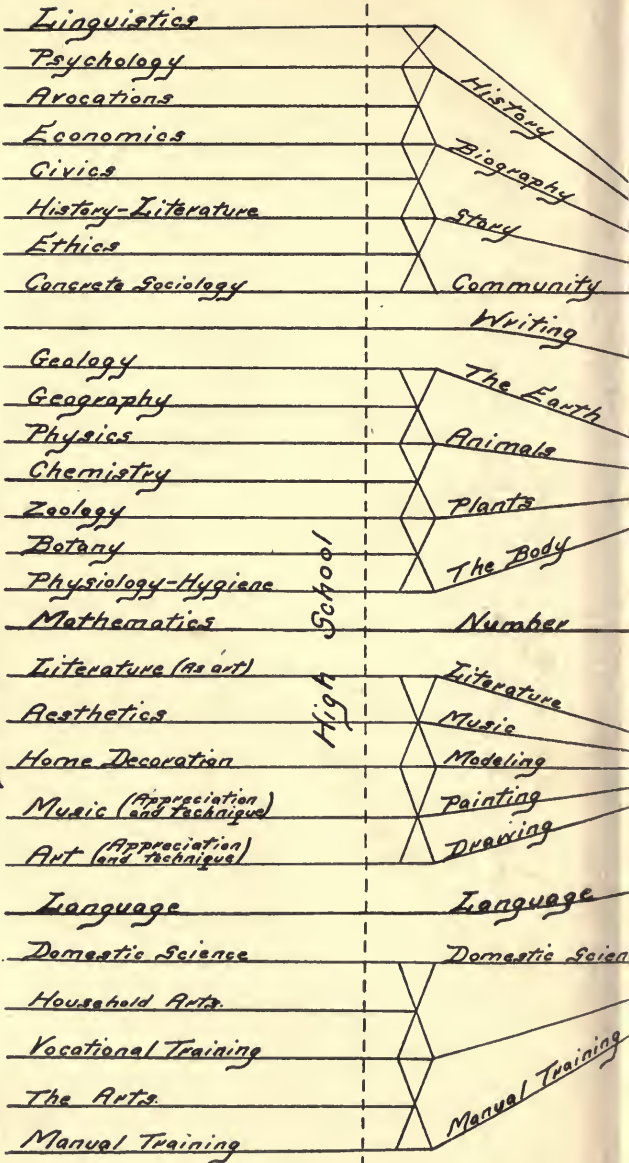 Linguistics
Psychology
Avocations
Economics
Civics
History-Literature
Ethics
Concrete Sociology
Geology
Geography
Physics
Chemistry
Zoology
Botany
Physiology-Hygiene
Mathematics
Literature (As art)
Aesthetics
Home Decoration
Music (Appreciation and technique)
Art (Appreciation and technique)
Language
Domestic Science
Household Arts.
Vocational Training
The Arts.
Manual Training
High School
History
Biography
Story
Community
Writing
The Earth
Animals
Plants
The Body
Number
Literature
Music
Modeling
Painting
Drawing
Language
Domestic Scien
Manual Training